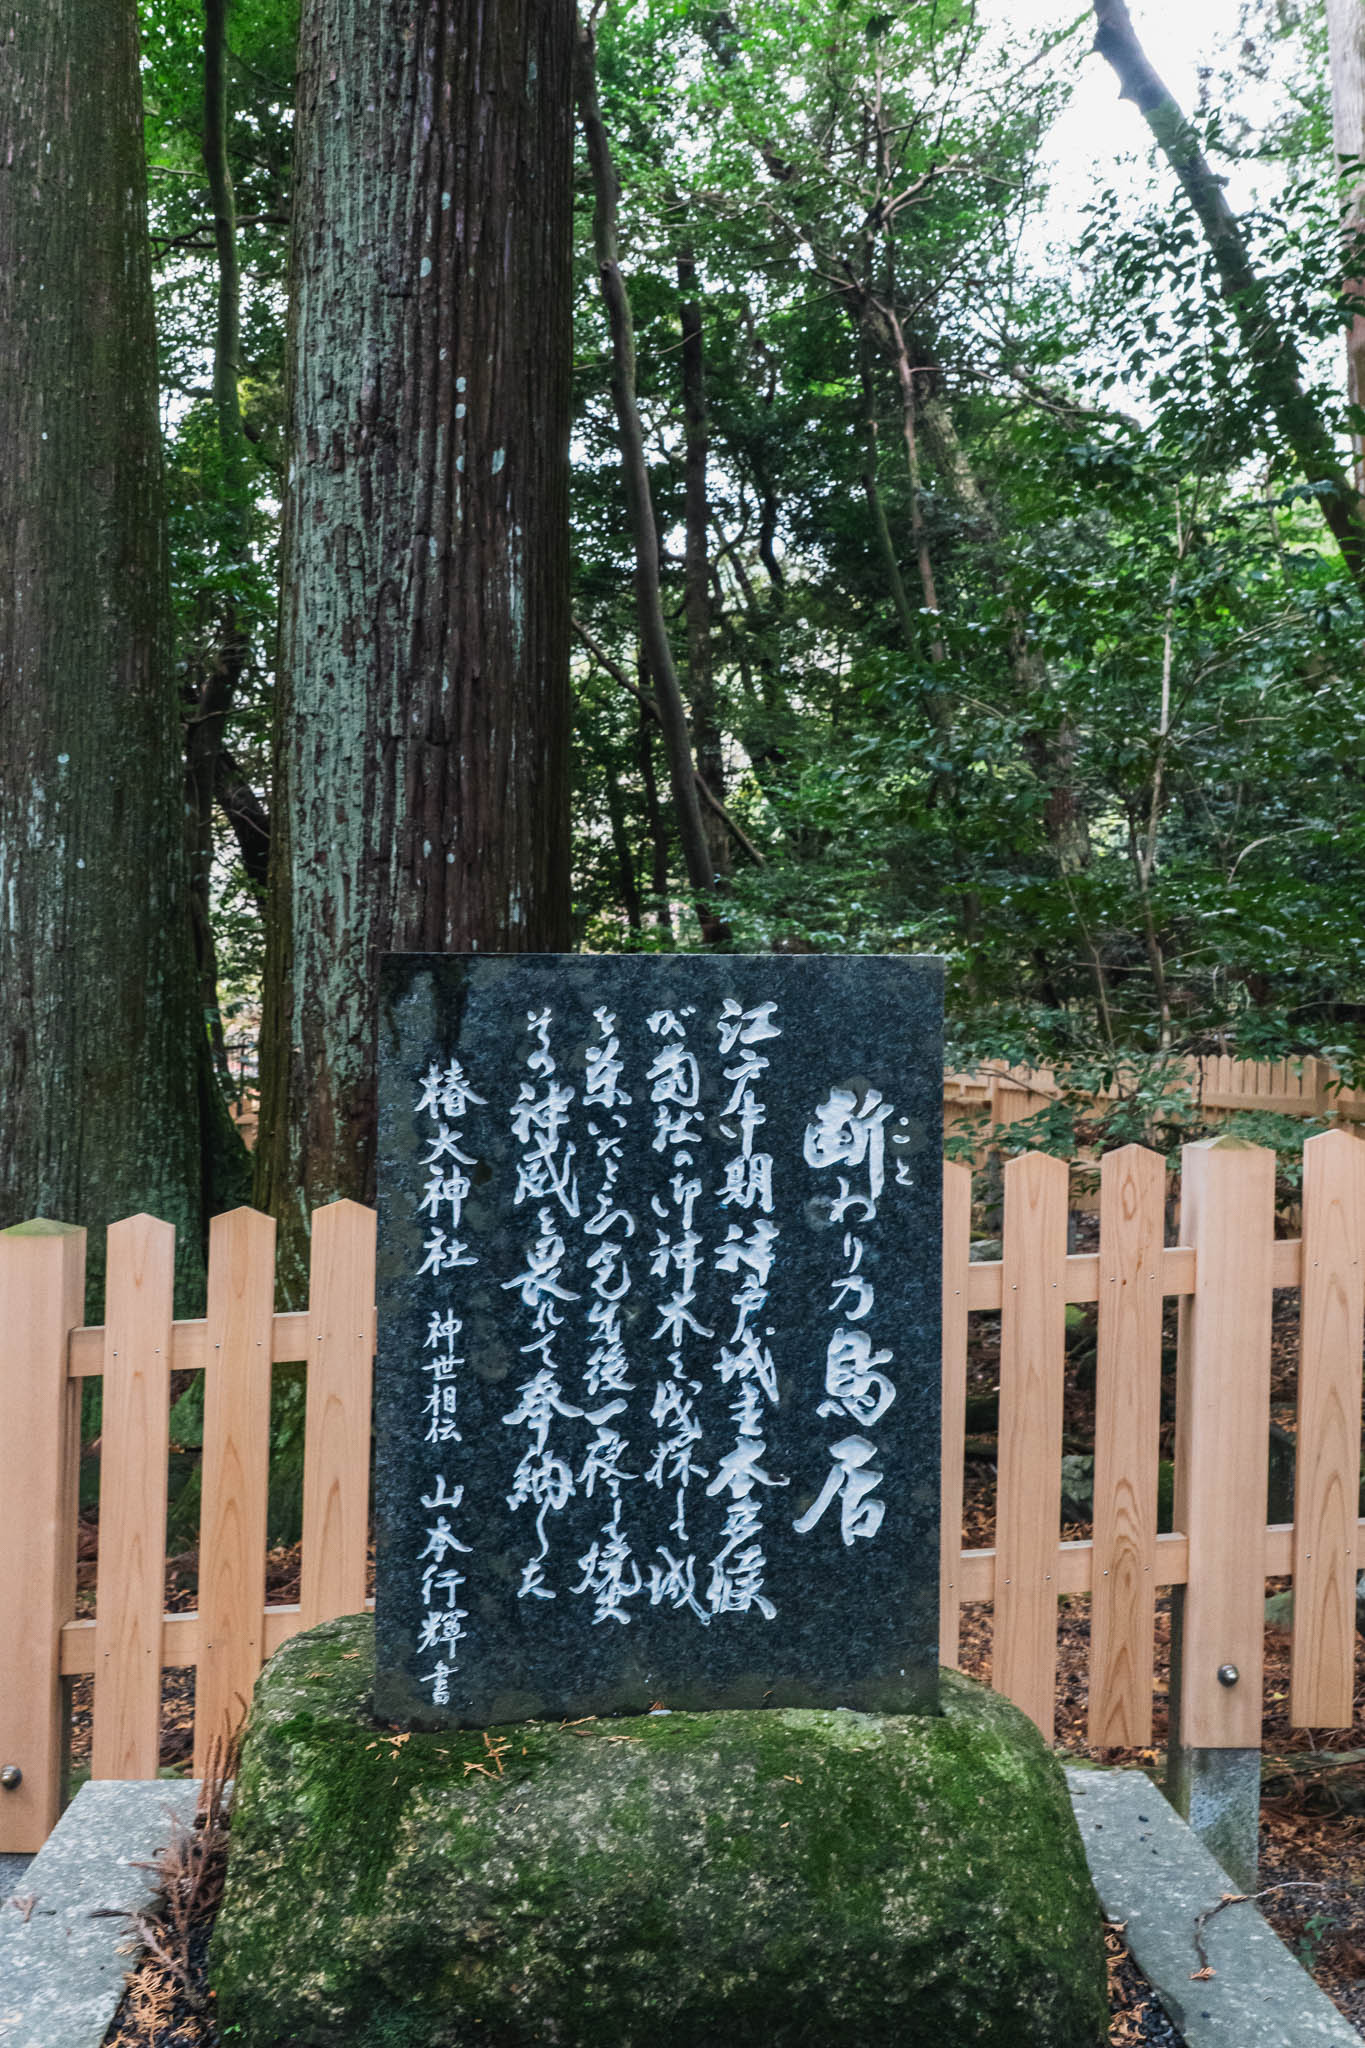 断わり乃鳥居
こと
江戸中期神戸城主本多候
が当社の御神木を伐採し城
を築いたところ完成後一夜にして焼失
その神威を畏れて奉納した
椿大神社 神世相伝 山本行輝書